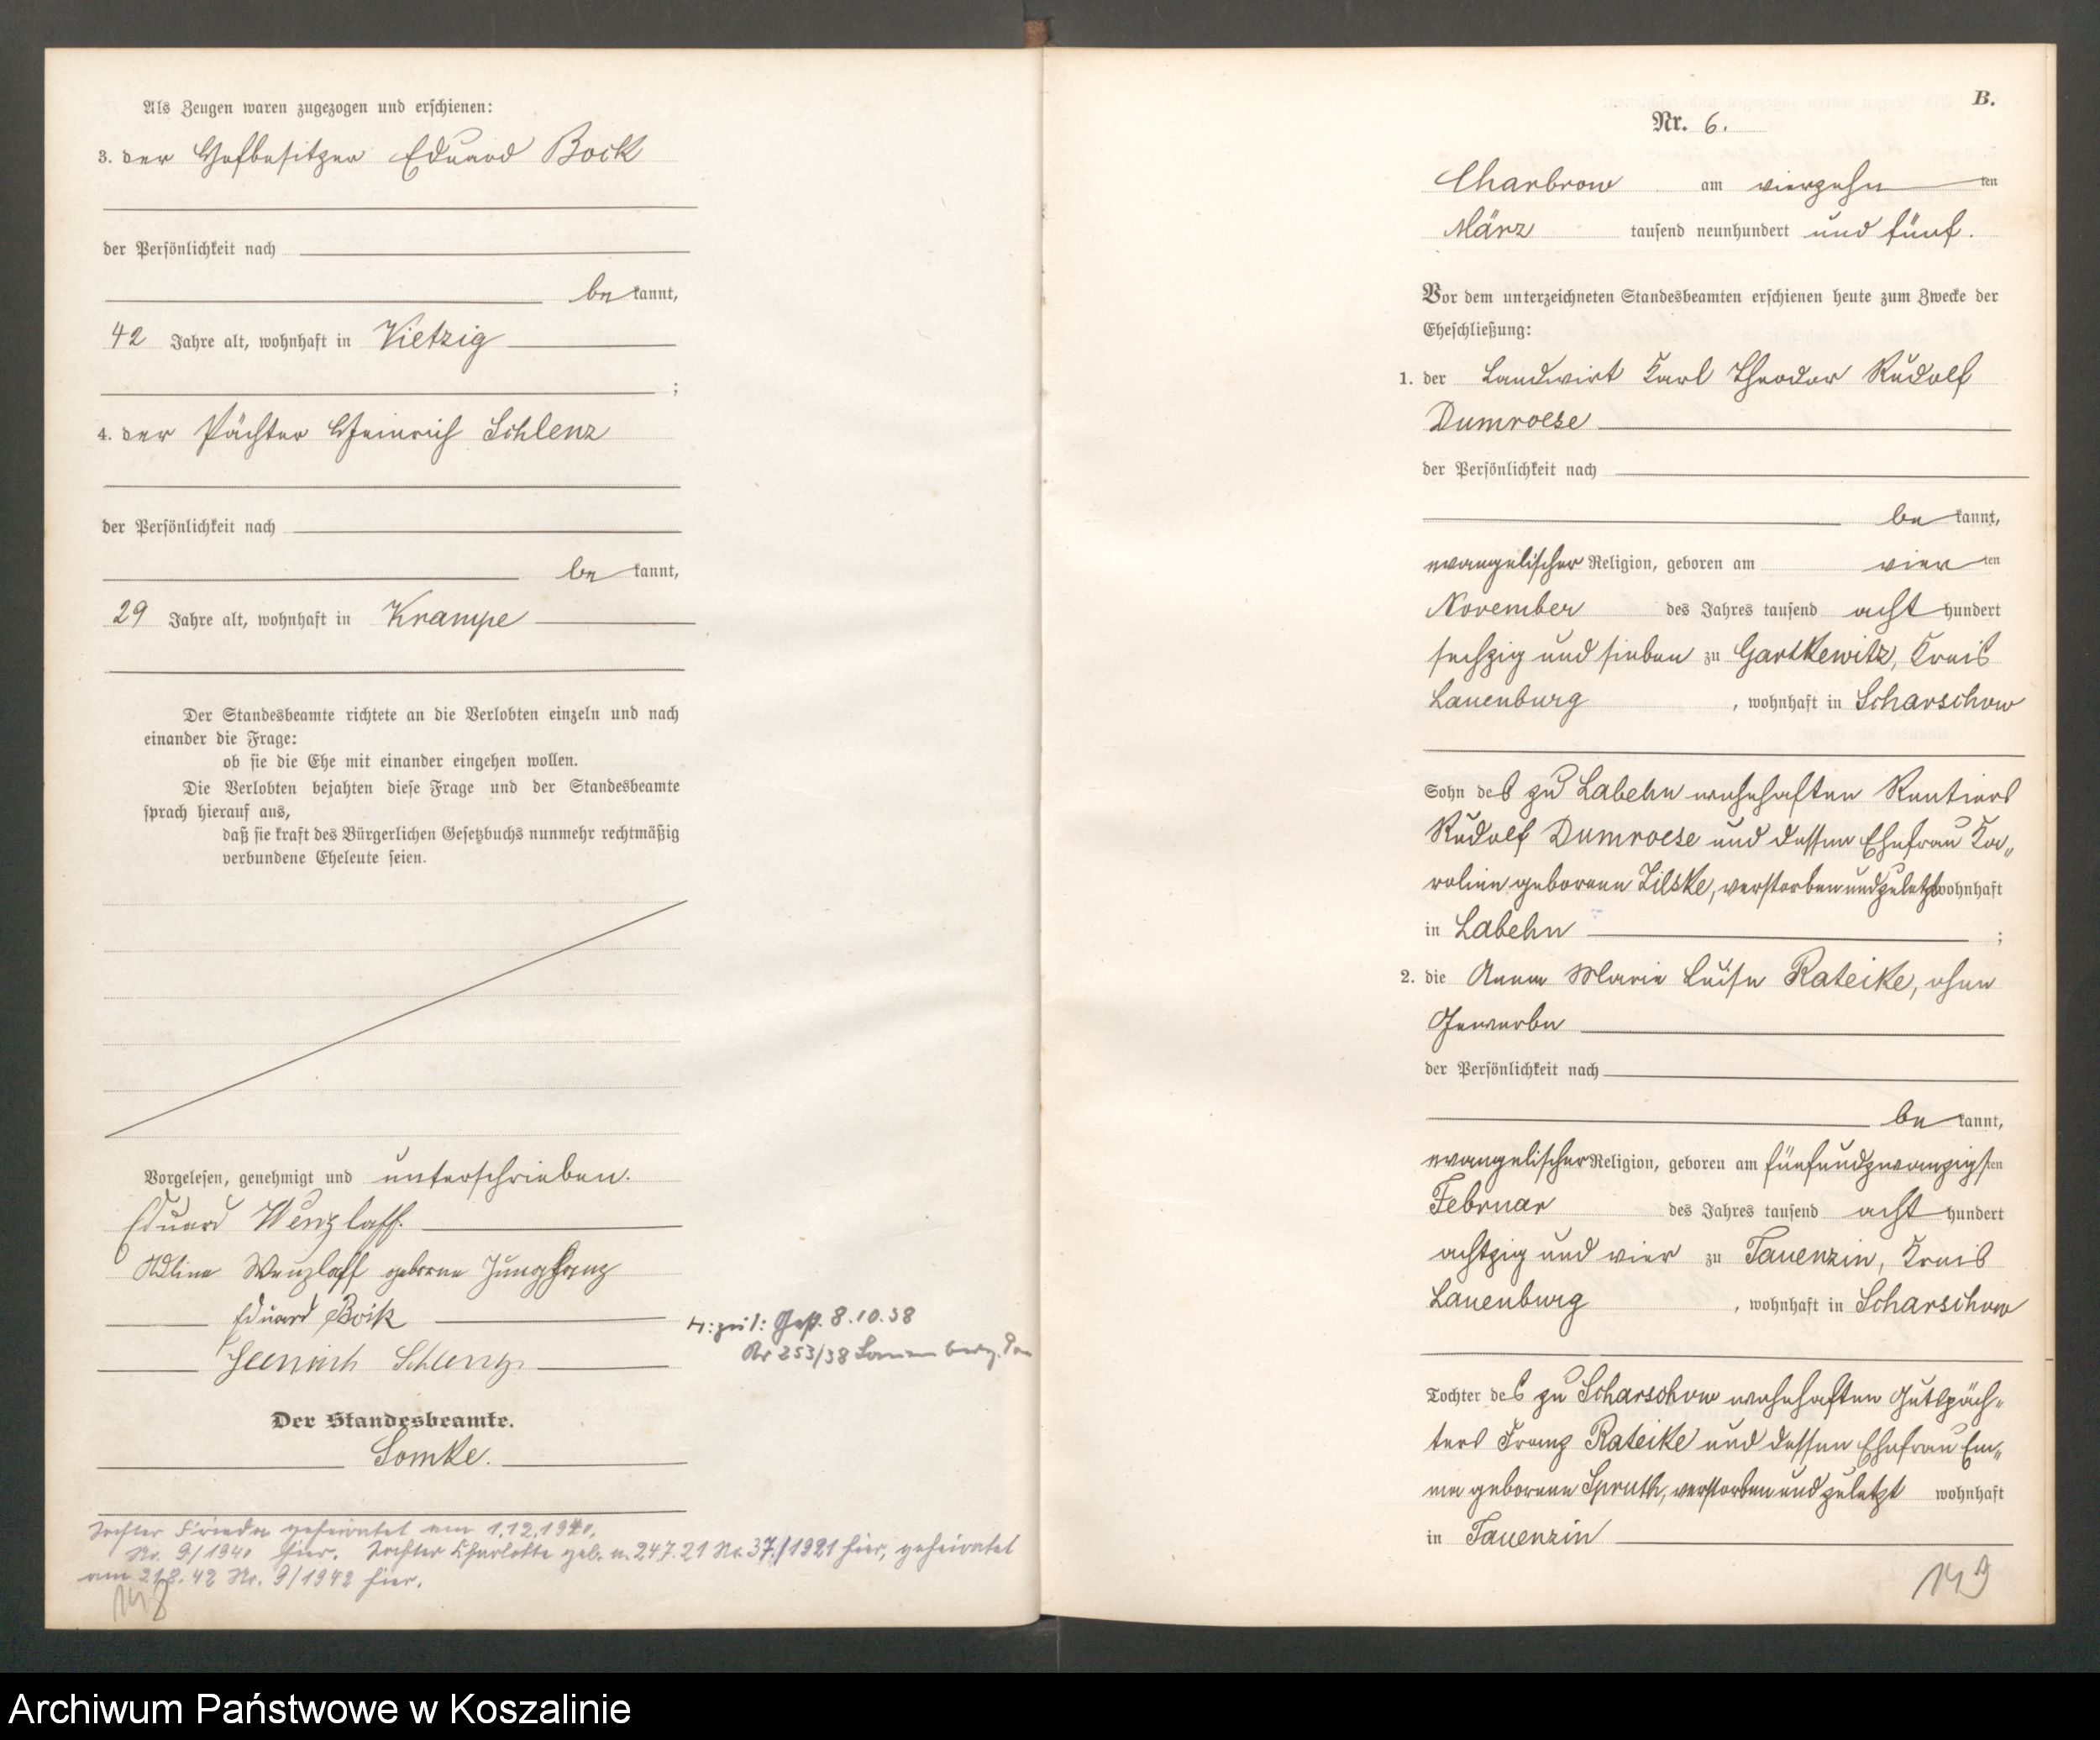 Als Zeugen waren zugezogen und erschienen:
3. der Hofbesitzer Eduard Bock
der Persönlichkeit nach
be kannt,
42 Jahre alt, wohnhaft in Vietzig
;
4. der Pächter Heinrich Schlenz
der Persönlichkeit nach
be kannt,
29 Jahre alt, wohnhaft in Krampe
Der Standesbeamte richtete an die Verlobten einzeln und nach
einander die Frage:
ob sie die Ehe mit einander eingehen wollen.
Die Verlobten bejahten diese Frage und der Standesbeamte
sprach hierauf aus,
daß sie kraft des Bürgerlichen Gesetzbuchs nunmehr rechtmäßig
verbundene Eheleute seien.
Vorgelesen, genehmigt und unterschrieben.
Eduard Wenzlaff.
Wenzlaff geborne
Eduard Bock
Heinrich Schlenz
Der Standesbeamte.
Lomke.
Gest. 8.10.38
Nr 253/38
Tochter Frieda geheiratet am 1.12.1940,
Nr. 9/1940 hier. Tochter Charlotte geb. a. 24.7.21 Nr. 37/1921 hier, geheiratet
am 21.8.42 Nr. 9/1942 hier.
148
B.
Nr. 6.
Charbrow am vierzehn ten
März tausend neunhundert und fünf.
Vor dem unterzeichneten Standesbeamten erschienen heute zum Zwecke der
Eheschließung:
1. der Landwirt Karl Theodor Rudolf
Dumroese
der Persönlichkeit nach
be kannt,
evangelischer Religion, geboren am vier ten
November des Jahres tausend acht hundert
sechzig und sieben zu Gartkewitz, Kreis
Lauenburg, wohnhaft in Scharschow
Sohn des zu Labehn wohnhaften Rentiers
Rudolf Dumroese und dessen Ehefrau Ka„
roline geborene Zilske, verstorben und zuletzt wohnhaft
in Labehn ;
2. die Anna Marie Luise Rateike, ohne
Gewerbe
der Persönlichkeit nach
be kannt,
evangelischer Religion, geboren am fünfundzwanzigsten
Februar des Jahres tausend acht hundert
achtzig und vier zu Tauenzin, Kreis
Lauenburg, wohnhaft in Scharschow
Tochter des zu Scharschow wohnhaften Gutspäch„
ters Franz Rateike und dessen Ehefrau Em„
ma geborene Spruth, verstorben und zuletzt wohnhaft
in Tauenzin
149
Archiwum Państwowe w Koszalinie